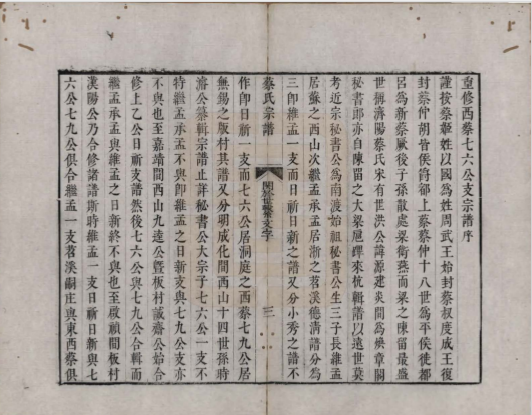 重修西蔡七六公支宗譜序
謹按蔡姬姓以國爲姓周武王始封蔡叔度成王復
封蔡仲胡皆侯爵都上蔡蔡仲十八世爲平侯徙都
呂爲新蔡厥後子孫散處梁衛燕而梁之陳留最盛
世稱濟陽蔡氏宋有世洪公諱源建炎間爲煥章閣
秘書郎亦自陳留之大梁扈蹕來杭輯譜以遠世莫
考近宗秘書公爲南渡始祖秘書公生三子長維孟
居蘇之西山次繼孟承孟居浙之苕溪德淸譜分爲
三卽維孟一支而日新日新之譜又分小秀之譜不
蔡氏宗譜
關於世繫文字
三
作卽日新一支而七六公居洞庭之西蔡七九公居
無錫之版村其譜又分明成化間西山十四世孫時
濟公纂輯宗譜止詳秘書公大宗子七六一支不
特繼孟承孟不與卽維孟之日新支與七九公支亦
不與也至嘉靖間西山九逵公暨板村誠齋公始合
修上乙公日新支譜然後七六公與七九公合輯而
繼孟承孟與維孟之日新終不與也至啟禎間板村
漢陽公乃合修諸譜斯時維孟一支日新日新與七
六公七九公俱合繼孟一支苕溪嗣庄與東西蔡俱